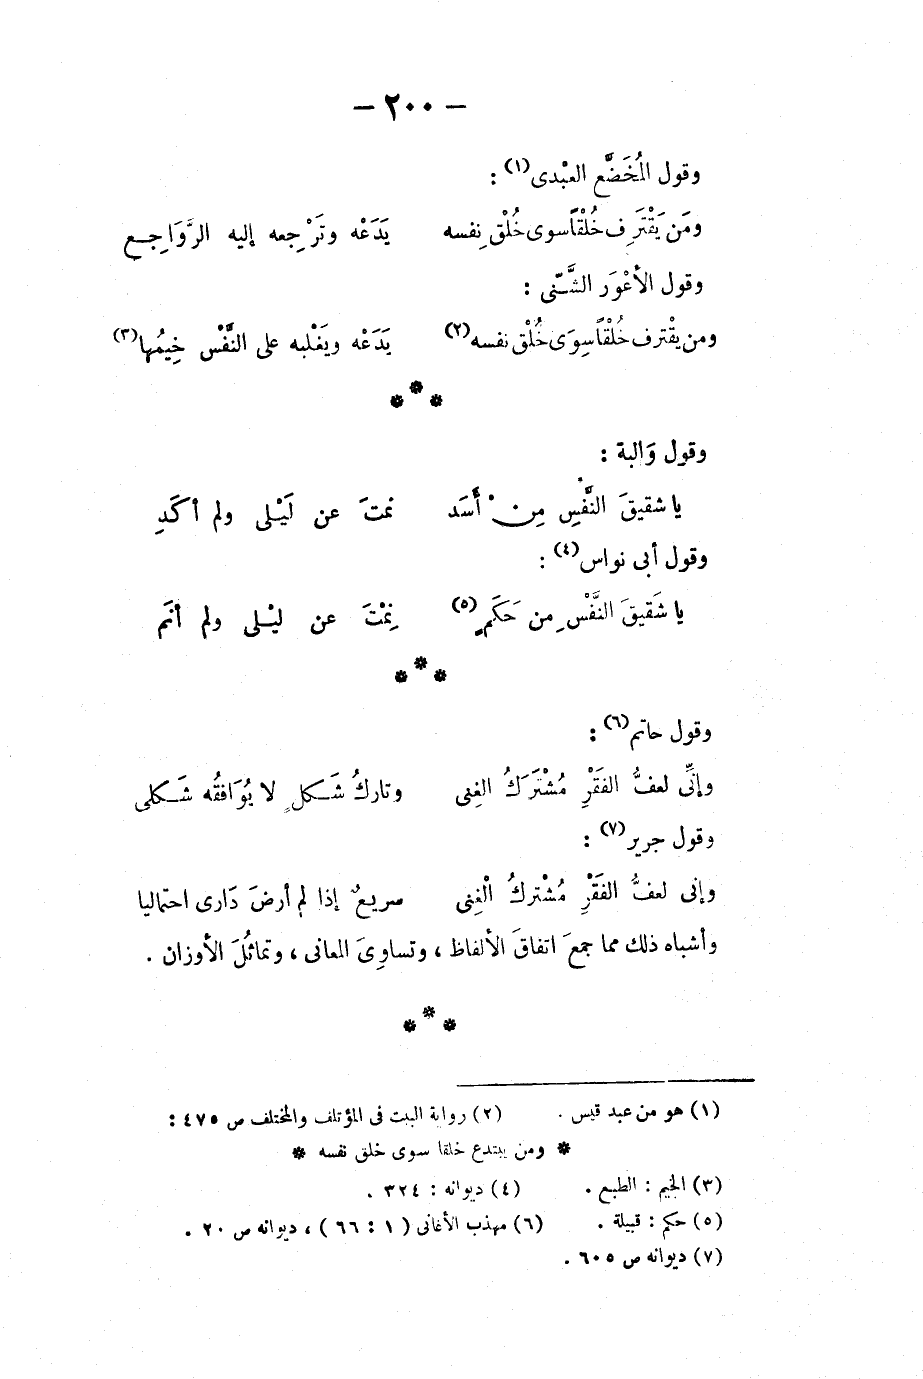 — ٢٠٠ —
وقول المُخَضَّع العبْدى(١) :
ومَن يَقْتَرِف خُلْقًا سوى خُلْقِ نفسه يَدَعْه وتَرْجِعه إليه الرَّوَاجِـع
وقول الأعْوَر الشَّـنّى :
ومن يقْترف خُلْقًا سِوَى خُلْق نفسه(٢) يَدَعْه ويَغْلبه على النَّفْس خِيمُها(٣)
* * *
وقول وَالبة :
يا شقيقَ النَّفْسِ مِن أَسَد نمتَ عن لَيْـلى ولم أكَدِ
وقول أبى نواس(٤) :
يا شَقيقَ النَّفْسِ من حَكَمٍ(٥) نِمْتَ عن ليْـلى ولم أنَم
* * *
وقول حاتم(٦) :
وإنِّى لعفُّ الفَقْرِ مُشْتَرَكُ الغِنى وتاركُ شَـكلٍ لا يُوَافقُه شَـكلى
وقول جرير(٧) :
وإنى لعفُّ الفَقْرِ مُشْتركُ الْغِنى سريعٌ إذا لم أرضَ دَارى احتماليا
وأشباه ذلك مما جمعَ اتفاقَ الألفاظ ، وتساوِىَ المعانى ، وتماثُلَ الأوزان .
* * *
(١) هو من عبد قيس . (٢) رواية البيت فى المؤتلف والمختلف ص ٤٧٥ :
* ومن يبتدع خلقا سوى خلق نفسه *
(٣) الخيم : الطبع . (٤) ديوانه : ٣٢٤ .
(٥) حكم : قبيلة . (٦) مهذب الأغانى ( ١ : ٦٦ ) ، ديوانه ص ٢٠ .
(٧) ديوانه ص ٦٠٥ .